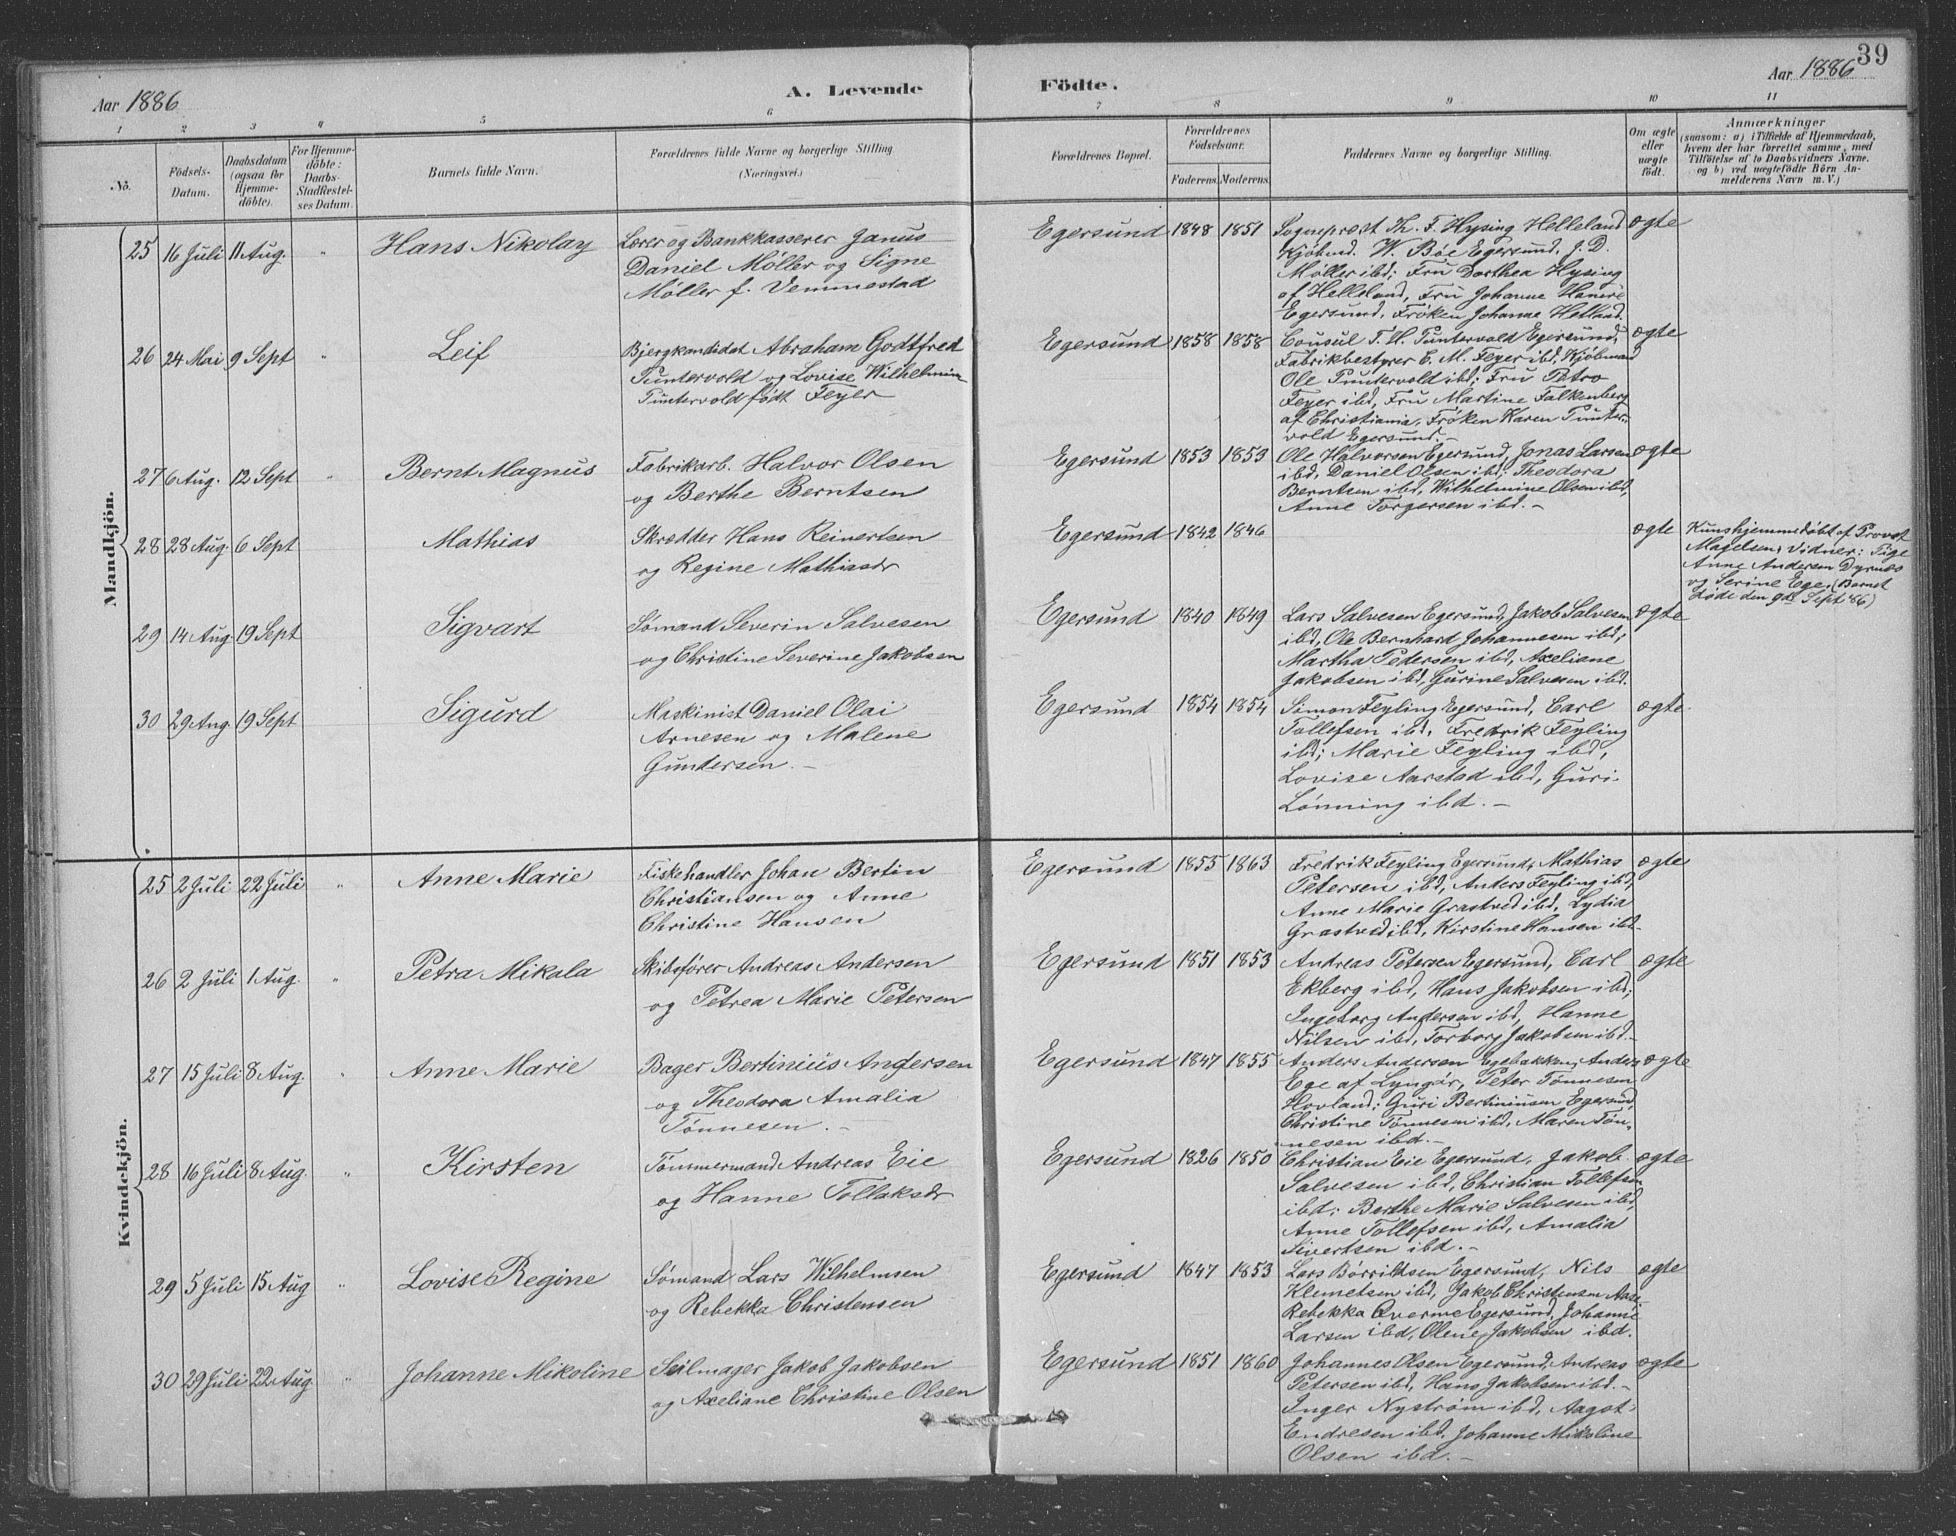 39
Aar 1886
A. Levende Födte.
Aar 1886
1 2 3 4 5 6 7 8 9 10 11
No.
Födsels-Datum.
Daabsdatum (ogsaa for Hjemme-döbte).
For Hjemme-döbte: Daabs-Stadfæstel-ses Datum.
Barnets fulde Navn.
Forældrenes fulde Navne og borgerlige Stilling (Næringsvei.)
Forældrenes Bopæl.
Forældrenes Födselsaar.
Faderens. Moderens.
Faddernes Navne og borgerlige Stilling.
Om ægte eller uægte födt.
Anmærkninger
(saasom: a) i Tilfælde af Hjemmedaab,
hvem der har forrettet samme, med
Tilföielse af to Daabsvidners Navne.
og b) ved uægtefödte Börn An-
melderens Navn m. V.)
Mandkjön.
25 16 Juli 11 Aug. " Hans Nikolay
Lærer og Bankkasserer Janus
Daniel Møller og Signe
Møller f. Vemmestad
Egersund 1848 1851
Sogneprest Th. F. Hysing Helleland
Kjøbmd. W. Bøe Egersund, J. D.
Møller ibd; Fru Dorthea Hysing
af Helleland, Fru Johanne
Egersund, Frøken Johanne Helland.
ægte
26 24 Mai 9 Sept " Leif
Bjergkandidat Abraham Godtfred
Puntervold og Lovise Wilhelmin
Puntervold født Feyer
Egersund 1858 1858
Consul T. H. Puntervold Egersund,
Fabrikbestyrer C. M. Feyer ibd, Kjøbmand
Ole Puntervold ibd; Fru Petro
Feyer ibd, Fru Martine Falkenberg
af Christiania, Frøken Karen Punter-
vold Egersund. –
ægte
27 6 Aug. 12 Sept " Bernt Magnus
Fabrikarb. Halvor Olsen
og Berthe Berntsen
Egersund 1853 1853
Ole Halvorsen Egersund, Jonas Larsen
ibd, Daniel Olsen ibd; Theodora
Berntsen ibd, Wilhelmine Olsen ibd,
Anne Torgersen ibd. –
ægte
28 28 Aug. 6 Sept Mathias
Skrædder Hans Reinertsen
og Regine Mathiasdr
Egersund 1842 1846
ægte
Kuns hjemmedøbt af Provst
Magelsen; Vidner: Pige
Anne Andersen Dyrnæs
og Serine Ege. (Barnet
døde den 9de Sept 86)
29 14 Aug. 19 Sept Sigvart
Sømand Severin Salvesen
og Christine Severine Jakobsen
Egersund 1840 1849
Lars Salvesen Egersund, Jakob Salvesen
ibd, Ole Bernhard Johannesen ibd;
Martha Pedersen ibd, Axeliane
Jakobsen ibd, Gurine Salvesen ibd.
ægte
30 29 Aug. 19 Sept Sigurd
Maskinist Daniel Olai
Arnesen og Malene
Gundersen. –
Egersund 1854 1854
Simon Feyling Egersund, Carl
Tollefsen ibd, Fredrik Feyling
ibd; Marie Feyling ibd,
Lovise Aarstad ibd, Guri
Lønning ibd. –
ægte.
Kvindekjön.
25 2 Juli 22 Juli " Anne Marie
Fiskehandler Johan Bertin
Christiansen og Anne
Christine Hansen
Egersund 1855 1863
Fredrik Feyling Egersund, Mathias
Petersen ibd, Anders Feyling ibd;
Anne Marie Grastved ibd, Lydia
Grastved ibd, Kirstine Hansen ibd.
ægte
26 2 Juli 1 Aug. " Petra Mikala
Skibsfører Andreas Andersen
og Petrea Marie Petersen
Egersund 1851 1853
Andreas Petersen Egersund, Carl
Ekberg ibd, Hans Jakobsen ibd;
Ingeborg Andersen ibd, Hanne
Nilsen ibd, Torborg Jakobsen ibd. –
ægte
27 15 Juli 8 Aug. " Anne Marie
Bager Bertinius Andersen
og Theodora Amalia
Tønnesen. –
Egersund 1847 1855
Anders Andersen Egebakken, Anders
Ege af Lyngør, Peter Tønnesen
Hovland; Guri Bertiniusen Egersund,
Christine Tønnesen ibd, Maren Tøn-
nesen ibd. –
ægte
28 16 Juli 8 Aug. " Kirsten
Tømmermand Andreas Eie
og Hanne Tollaksdr
Egersund 1826 1850
Christian Eie Egersund, Jakob
Salvesen ibd, Christian Tollefsen
ibd; Berthe Marie Salvesen ibd,
Anne Tollefsen ibd, Amalia
Sivertsen ibd. –
ægte
29 5 Juli 15 Aug " Lovise Regine
Sømand Lars Wilhelmsen
og Rebekka Christensen
Egersund 1847 1853
Lars Børrildsen Egersund, Nils
Klemetsen ibd, Jakob Christensen
Rebekka Egersund, Johanne
Larsen ibd, Olene Jakobsen ibd.
ægte
30 29 Juli 22 Aug. " Johanne Mikoline
Seilmager Jakob Jakobsen
og Axeliane Christine Olsen
Egersund 1851 1860
Johannes Olsen Egersund, Andreas
Petersen ibd, Hans Jakobsen ibd. –
Inger Nystrøm ibd, Aagot
Endresen ibd, Johanne Mikoline
Olsen ibd. –
ægte